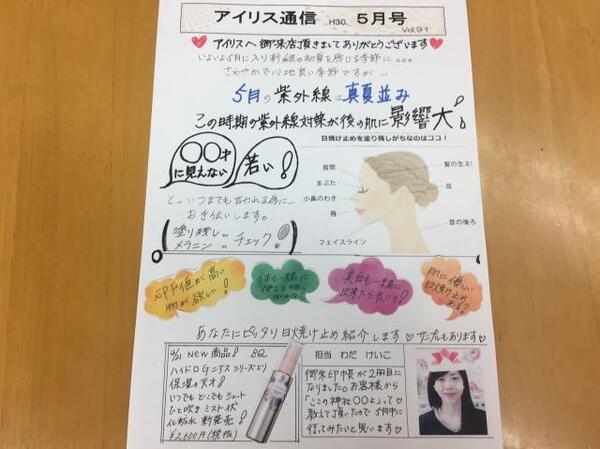 アイリス通信 H30. 5月号
Vol.91
アイリスへ御来店頂きましてありがとうございます
いよいよ5月に入り新緑の初夏を感じる季節に。。。
さわやかで心地良い季節ですが…
5月の紫外線は真夏並み
この時期の紫外線対策が後の肌に影響大!
日焼け止めを塗り残しがちなのはココ!
〇〇才に見えない
若い!
眉間
まぶた
小鼻のわき
唇
フェイスライン
髪の生え際
耳
首の後ろ
と、いつまでも言われる為に…
お手伝いします。
塗り残し
メラニン
チェック
SPF値が高い物が欲しい!
体も一緒に使える
美白も一緒に出来たら良い!
肌に優しい日焼け止めある?
あなたにピッタリ日焼け止め紹介します サンプルもあります
new商品! BQ
シリーズより
保湿の天才!
いつでもどこでもシュート
ひと吹きミスト状
化粧水 新発売!
¥2,600円(税抜)
担当 わだ けいこ
御朱印帳が2冊目に
なりました。お客様から
「ここの神社〇〇よ」って
教えて頂いたので5月中に
行ってみたいと思います